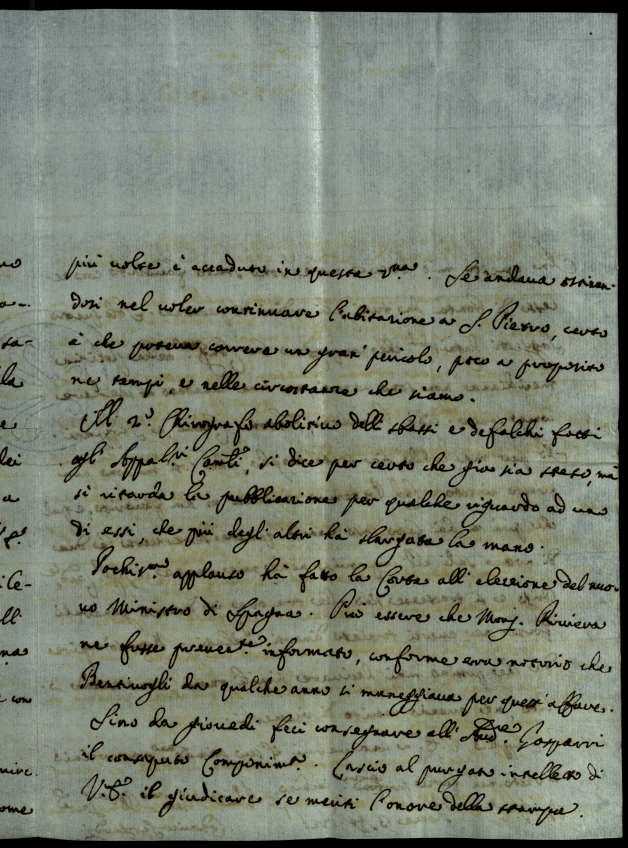 più volte è accaduto in questa r.ma. Se andava ostinan-
dosi nel voler continuare l'abitazione a S. Pietro, certo
è che poteva correre un gran pericolo, poco a proposito
ne tempi, e nelle circostanze che siamo.
Il 2.º Chirografo abolitivo delli sbassi e defalchi fatti
agli Appal.ri Cam.li, si dice per certo che già sia steso, mà
si ritarda la pubblicazione per qualche riguardo ad uno
di essi, che più degl'altri hà slargata la mano.
Pochis.mo applauso hà fatto la Corte all'elezione del nuo-
vo Ministro di Spagna. Può essere che Mons. Riviera
ne fusse prevent.te informato, conforme era notorio che
Bentivogli da qualche anno si maneggiava per quest'affare.
Sino da giovedì feci consegnare all' Gasparri
il consaputo Componim.to. Lascio al purgato intelletto di
V.S. il giudicare se meriti l'onore della stampa.